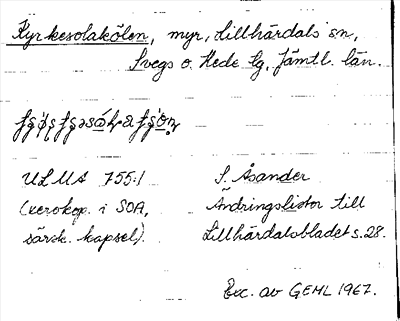 Kyrkesolakölen, myr, Lillhärdals sn,
Svegs o. Hede tg, Jämtl. län.
ULMA 755:1
S. Åsander
(xerokop. i SOA,
Ändringslistor till
särsk. kapsel).
Lillhärdalsbladet s. 28.
Exc. av GEHL 1967.